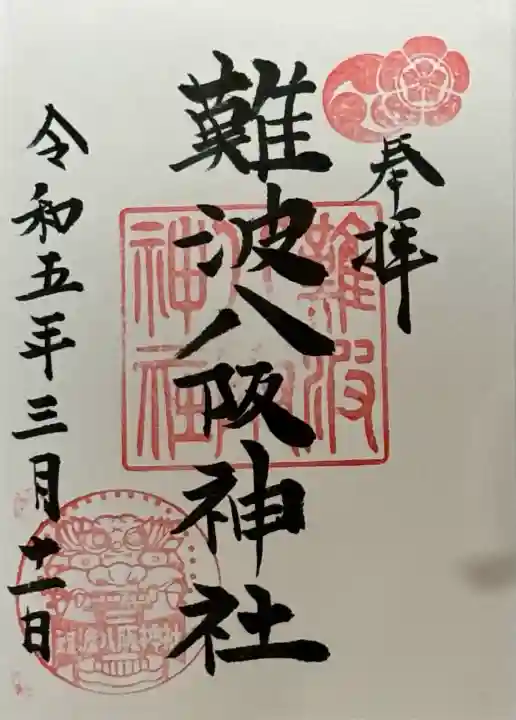 奉拝
難波八阪神社
難波八阪神社
令和五年三月十一日
難波八阪神社